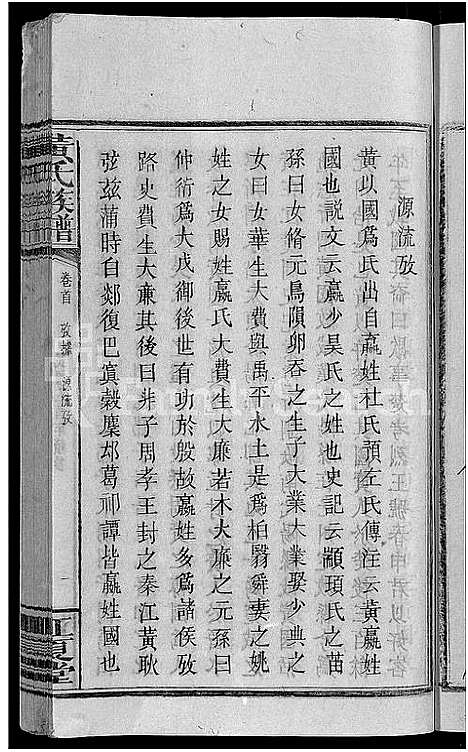 源流攷
黃以國爲氏出自嬴姓杜氏預左氏傳注云黃嬴姓
國也説文云嬴少昊氏之姓也史記云顓頊氏之苗
孫曰女脩元鳥隕卵吞之生子大業大業娶少典之
女曰女華生大費與禹平水土是爲柏翳舜妻之姚
姓之女賜姓嬴氏大費生大廉若木大廉之元孫曰
仲衍爲大戊御後世有功於殷故嬴姓多爲諸侯攷
路史費生大廉其後曰非子周孝王封之秦江黃耿
弦茲蒲時白郯復巴寘穀麇邥葛祁譚皆嬴姓國也
黃氏族譜
卷首
攷據
源流攷
一
江夏堂